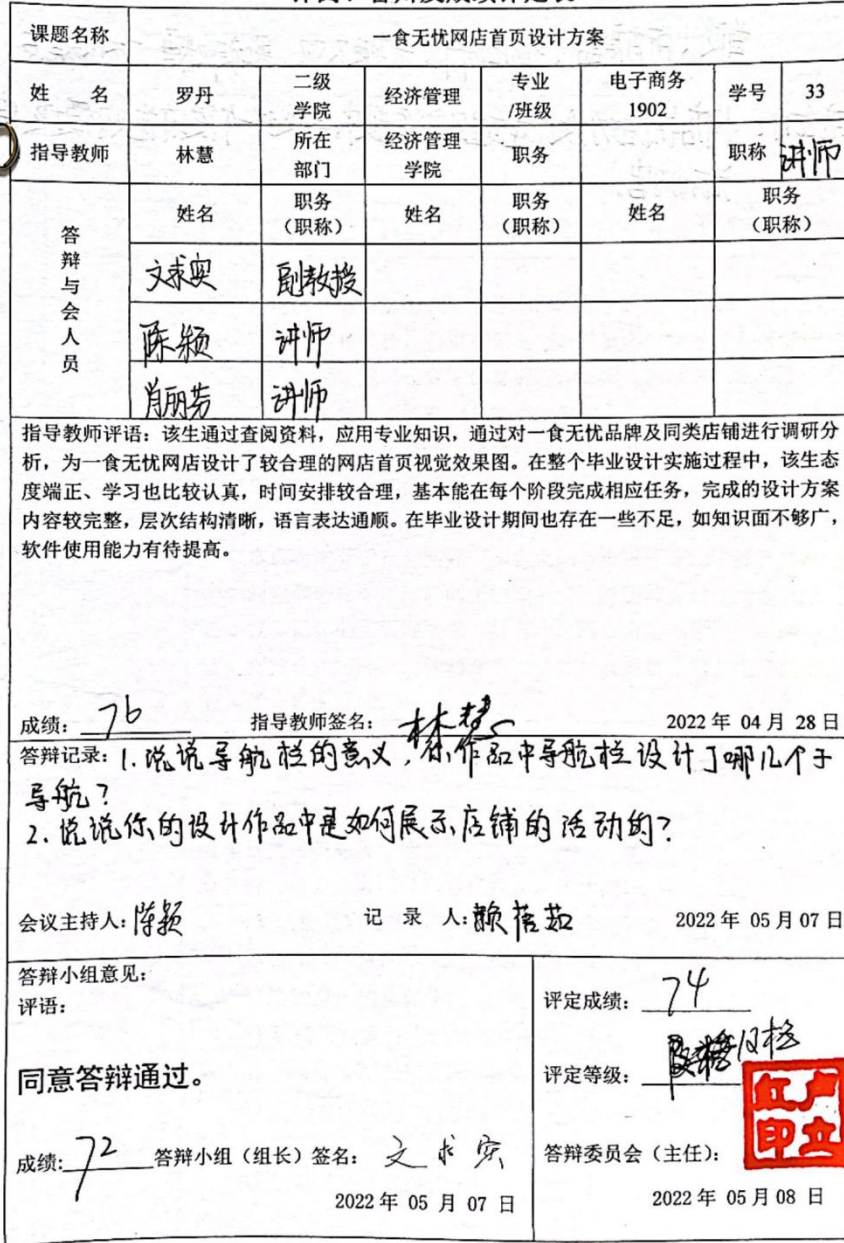 课题名称 一食无忧网店首页设计方案
姓 名 罗丹 二级学院 经济管理 专业/班级 电子商务1902 学号 33
指导教师 林慧 所在部门 经济管理学院 职务 职称 讲师
答辩与会人员 姓名 职务（职称） 姓名 职务（职称） 姓名 职务（职称）
文求实 副教授
陈颖 讲师
肖丽芳 讲师
指导教师评语：该生通过查阅资料，应用专业知识，通过对一食无忧品牌及同类店铺进行调研分
析，为一食无忧网店设计了较合理的网店首页视觉效果图。在整个毕业设计实施过程中，该生态
度端正、学习也比较认真，时间安排较合理，基本能在每个阶段完成相应任务，完成的设计方案
内容较完整，层次结构清晰，语言表达通顺。在毕业设计期间也存在一些不足，如知识面不够广，
软件使用能力有待提高。
成绩：76 指导教师签名：林慧 2022 年 04 月 28 日
答辩记录：1.说说导航栏的意义，你作品中导航栏设计了哪几个子
导航？
2.说说你的设计作品中是如何展示店铺的活动的？
会议主持人：陈颖 记 录 人：赖 茹 2022 年 05 月 07 日
答辩小组意见：
评语：
同意答辩通过。
成绩：72 答辩小组（组长）签名：文求实
2022 年 05 月 07 日
评定成绩：74
评定等级：及格
答辩委员会（主任）：
2022 年 05 月 08 日